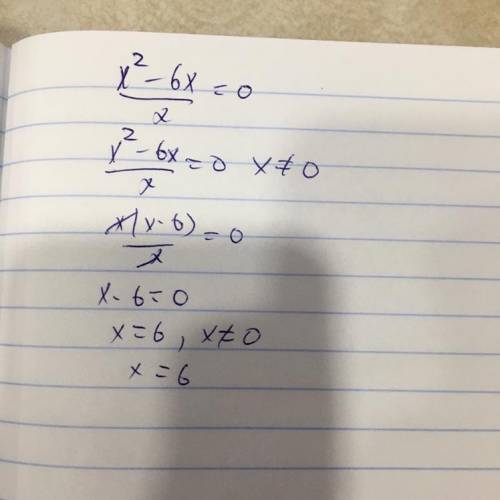 x² - 6x / x = 0
x² - 6x / x = 0 x ≠ 0
x(x - 6) / x = 0
x - 6 = 0
x = 6, x ≠ 0
x = 6